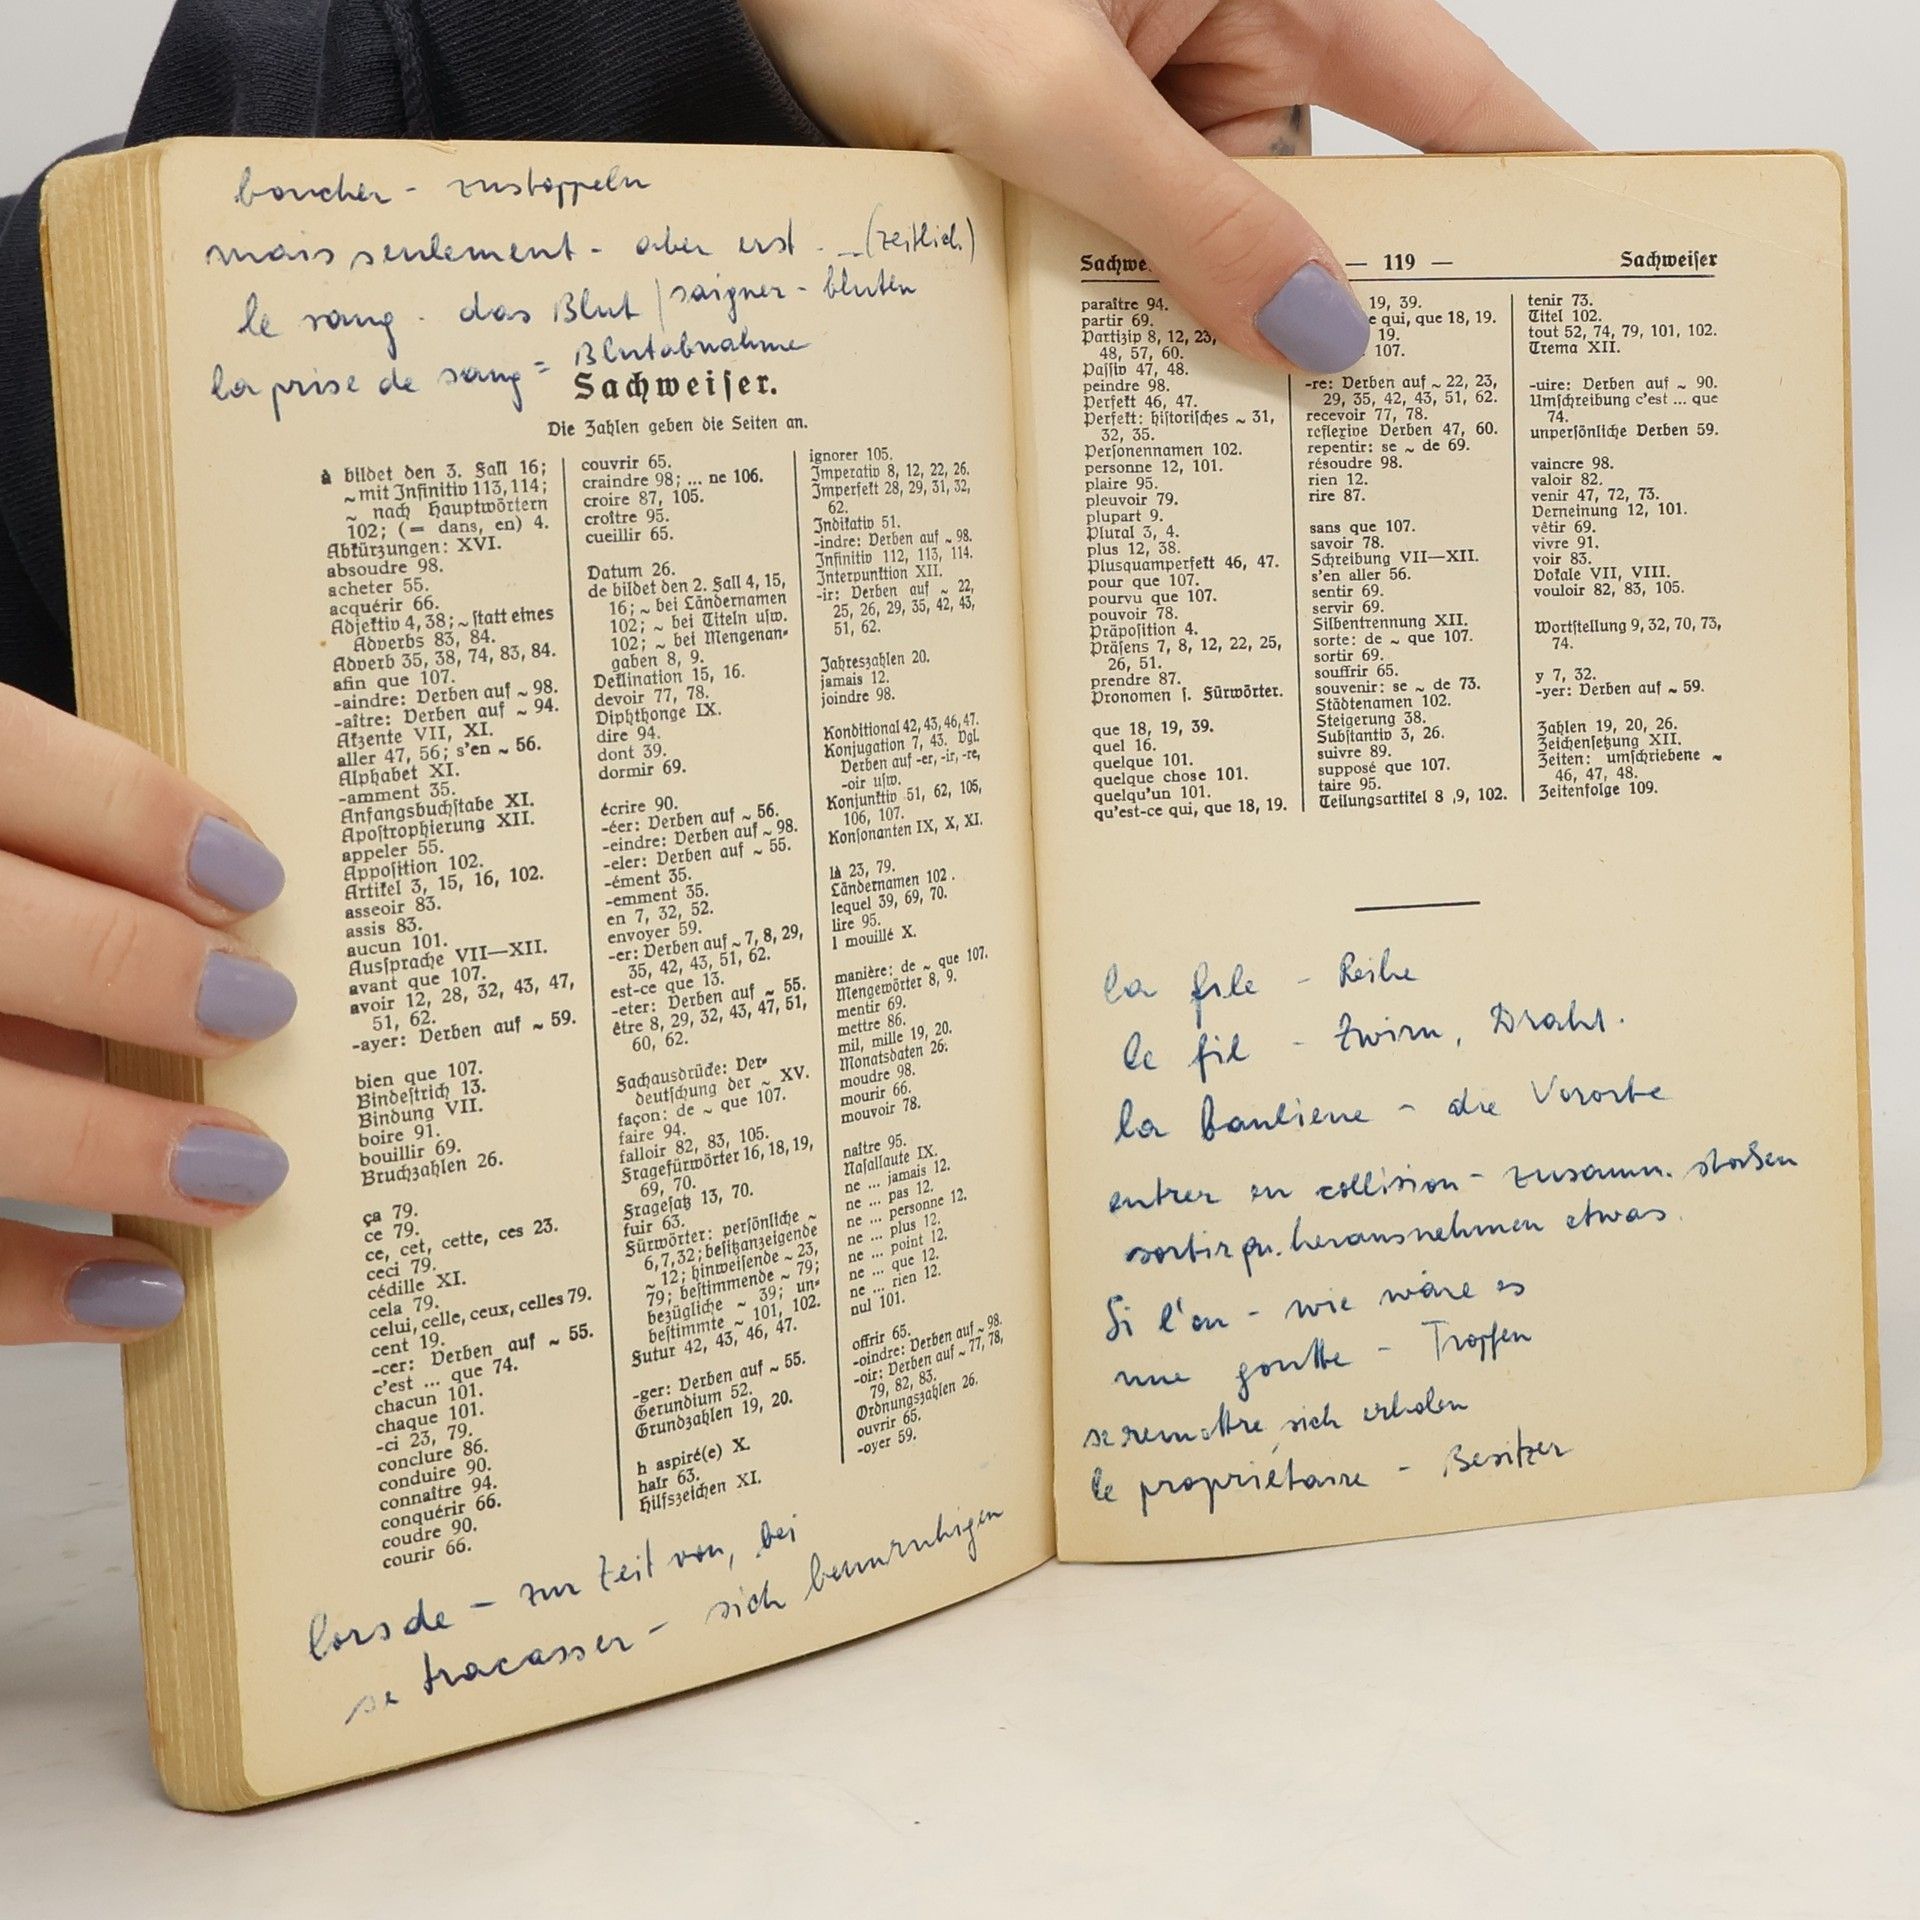 boucher - zustoppeln
mais seulement - aber erst - (zeitlich)
le sang - das Blut / saigner - bluten
la prise de sang = Blutabnahme
Sachweiser.
Die Zahlen geben die Seiten an.
à bildet den 3. Fall 16;
~ mit Infinitiv 113, 114;
~ nach Hauptwörtern
102; (= dans, en) 4.
Abkürzungen: XVI.
absoudre 98.
acheter 55.
acquérir 66.
Adjektiv 4, 38; ~ statt eines
Adverbs 83, 84.
Adverb 35, 38, 74, 83, 84.
afin que 107.
-aindre: Verben auf ~ 98.
-aître: Verben auf ~ 94.
Akzente VII, XI.
aller 47, 56; s'en ~ 56.
Alphabet XI.
-amment 35.
Anfangsbuchstabe XI.
Apostrophierung XII.
appeler 55.
Apposition 102.
Artikel 3, 15, 16, 102.
asseoir 83.
assis 83.
aucun 101.
Aussprache VII—XII.
avant que 107.
avoir 12, 28, 32, 43, 47,
51, 62.
-ayer: Verben auf ~ 59.
bien que 107.
Bindestrich 13.
Bindung VII.
boire 91.
bouillir 69.
Bruchzahlen 26.
ça 79.
ce 79.
ce, cet, cette, ces 23.
ceci 79.
cédille XI.
cela 79.
celui, celle, ceux, celles 79.
cent 19.
-cer: Verben auf ~ 55.
c'est ... que 74.
chacun 101.
chaque 101.
-ci 23, 79.
conclure 86.
conduire 90.
connaître 94.
conquérir 66.
coudre 90.
courir 66.
couvrir 65.
craindre 98; ... ne 106.
croire 87, 105.
croître 95.
cueillir 65.
Datum 26.
de bildet den 2. Fall 4, 15,
16; ~ bei Ländernamen
102; ~ bei Titeln usw.
102; ~ bei Mengenan-
gaben 8, 9.
Deklination 15, 16.
devoir 77, 78.
Diphthonge IX.
dire 94.
dont 39.
dormir 69.
écrire 90.
-éer: Verben auf ~ 56.
-eindre: Verben auf ~ 98.
-eler: Verben auf ~ 55.
-ément 35.
-emment 35.
en 7, 32, 52.
envoyer 59.
-er: Verben auf ~ 7, 8, 29,
35, 42, 43, 51, 62.
est-ce que 13.
-eter: Verben auf ~ 55.
être 8, 29, 32, 43, 47, 51,
60, 62.
Fachausdrücke: Ver-
deutschung der ~ XV.
façon: de ~ que 107.
faire 94.
falloir 82, 83, 105.
Fragefürwörter 16, 18, 19,
69, 70.
Fragesatz 13, 70.
fuir 63.
Fürwörter: persönliche ~
6, 7, 32; besitzanzeigende
~ 12; hinweisende ~ 23,
79; bestimmende ~ 79;
bezügliche ~ 39; un-
bestimmte ~ 101, 102.
Futur 42, 43, 46, 47.
-ger: Verben auf ~ 55.
Gerundium 52.
Grundzahlen 19, 20.
h aspiré(e) X.
haïr 63.
Hilfszeichen XI.
ignorer 105.
Imperativ 8, 12, 22, 26.
Imperfekt 28, 29, 31, 32,
62.
Indikativ 51.
-indre: Verben auf ~ 98.
Infinitiv 112, 113, 114.
Interpunktion XII.
-ir: Verben auf ~ 22,
25, 26, 29, 35, 42, 43,
51, 62.
Jahreszahlen 20.
jamais 12.
joindre 98.
Konditional 42, 43, 46, 47.
Konjugation 7, 43. Vgl.
Verben auf -er, -ir, -re,
-oir usw.
Konjunktiv 51, 62, 105,
106, 107.
Konsonanten IX, X, XI.
là 23, 79.
Ländernamen 102.
lequel 39, 69, 70.
lire 95.
l mouillé X.
manière: de ~ que 107.
Mengewörter 8, 9.
mentir 69.
mettre 86.
mil, mille 19, 20.
Monatsdaten 26.
moudre 98.
mourir 66.
mouvoir 78.
naître 95.
Nasallaute IX.
ne ... jamais 12.
ne ... pas 12.
ne ... personne 12.
ne ... plus 12.
ne ... point 12.
ne ... que 12.
ne ... rien 12.
nul 101.
offrir 65.
-oindre: Verben auf ~ 98.
-oir: Verben auf ~ 77, 78,
79, 82, 83.
Ordnungszahlen 26.
ouvrir 65.
-oyer 59.
lors de - zur Zeit von, bei
se tracasser - sich beunruhigen
Sachwe
— 119 —
Sachweiser
paraître 94.
partir 69.
Partizip 8, 12, 23,
48, 57, 60.
Passiv 47, 48.
peindre 98.
Perfekt 46, 47.
Perfekt: historisches ~ 31,
32, 35.
Personennamen 102.
personne 12, 101.
plaire 95.
pleuvoir 79.
plupart 9.
Plural 3, 4.
plus 12, 38.
Plusquamperfekt 46, 47.
pour que 107.
pourvu que 107.
pouvoir 78.
Präposition 4.
Präsens 7, 8, 12, 22, 25,
26, 51.
prendre 87.
Pronomen s. Fürwörter.
que 18, 19, 39.
quel 16.
quelque 101.
quelque chose 101.
quelqu'un 101.
qu'est-ce qui, que 18, 19.
19, 39.
e qui, que 18, 19.
19.
107.
-re: Verben auf ~ 22, 23,
29, 35, 42, 43, 51, 62.
recevoir 77, 78.
reflexive Verben 47, 60.
repentir: se ~ de 69.
résoudre 98.
rien 12.
rire 87.
sans que 107.
savoir 78.
Schreibung VII—XII.
s'en aller 56.
sentir 69.
servir 69.
Silbentrennung XII.
sorte: de ~ que 107.
sortir 69.
souffrir 65.
souvenir: se ~ de 73.
Städtenamen 102.
Steigerung 38.
Substantiv 3, 26.
suivre 89.
supposé que 107.
taire 95.
Teilungsartikel 8 ,9, 102.
tenir 73.
Titel 102.
tout 52, 74, 79, 101, 102.
Trema XII.
-uire: Verben auf ~ 90.
Umschreibung c'est ... que
74.
unpersönliche Verben 59.
vaincre 98.
valoir 82.
venir 47, 72, 73.
Verneinung 12, 101.
vêtir 69.
vivre 91.
voir 83.
Vokale VII, VIII.
vouloir 82, 83, 105.
Wortstellung 9, 32, 70, 73,
74.
y 7, 32.
-yer: Verben auf ~ 59.
Zahlen 19, 20, 26.
Zeichensetzung XII.
Zeiten: umschriebene ~
46, 47, 48.
Zeitenfolge 109.
la file - Reihe
le fil - Zwirn, Draht.
la banliene - die Vororte
entrer en collision - zusamm. stoßen
sortir qu. herausnehmen etwas.
Si l'on - wie wäre es
une goutte - Tropfen
se remettre, sich erholen
le propriétaire - Besitzer